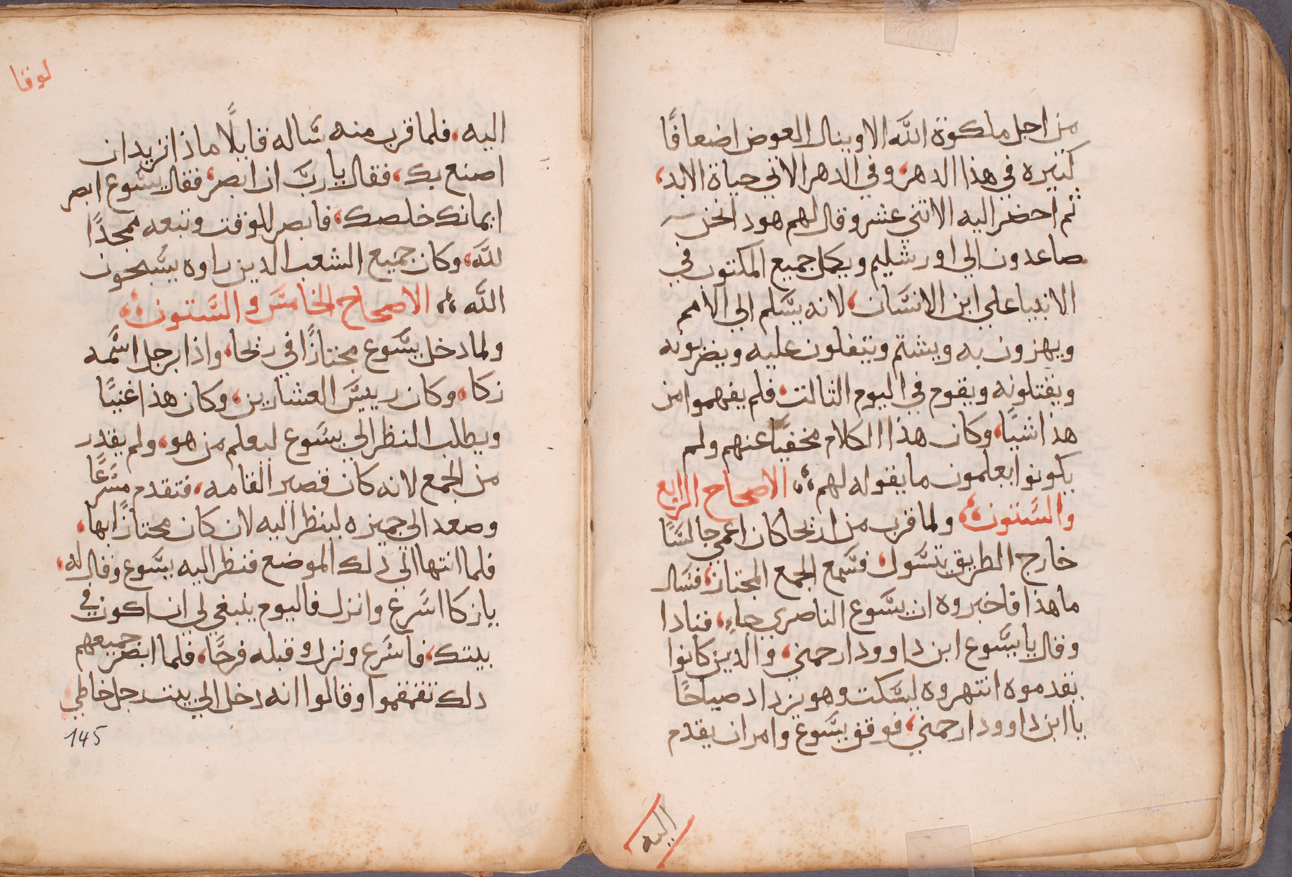 من اجل ملكوة الله الا وينال العوض اضعافًا
كثيره في هذا الدهر، وفي الدهر الاتي حياة الابد،
ثم احضر اليه الاثني عشر وقال لهم هودا نحن
صاعدون الي اورشليم ويكمل جميع المكتوب في
الانبيا علي ابن الانسان، لانه يسلم الي الامم
ويهزون به ويشتم ويتفلون عليه ويضربونه
ويقتلونه ويقوم في اليوم الثالث، فلم يفهموا من
هذا شيًا، وكان هذا الكلام مخفيًا عنهم ولم
يكونوا يعلمون ما يقوله لهم، الاصحاح الرابع
والستون، ولما قرب من اريحا كان اعمي جالسًا
خارج الطريق يتسول، فسمع الجمع المجتاز، فسال
ما هذا فاخبروه ان يسوع الناصري جاء، فنادا
وقال يا يسوع ابن داوود ارحمني، والدين كانوا
يقدموه انتهروه ليسكت وهو يزداد صياحًا
يا ابن داوود ارحمني، فوقف يسوع وامر ان يقدم
اليه
لوقا
اليه، فلما قرب منه ساله قايلًا ماذا تريد ان
اصنع بك، فقال يا ربّ ان ابصر، فقال يسوع ابصر
ايمانك خلصك، فابصر للوقت وتبعه ممجدًا
لله، وكان جميع الشعب الدين راوه يسبحون
الله، الاصحاح الخامس والستون،
ولما دخل يسوع مجتازًا في ريحا، واذا برجل اسمه
زكا، وكان رييس العشارين، وكان هذا غنيًا
ويطلب النظر الي يسوع ليعلم من هو، ولم يقدر
من الجمع لانه كان قصير القامه، فتقدم مسرعًا
وصعد الي جميزه لينظر اليه لان كان مجتازًا بها،
فلما انتها الي دلك الموضع فنظر اليه يسوع وقال له،
يا زكا اسرع وانزل فاليوم ينبغي لي ان اكون في
بيتك، فاسرع ونزل وقبله فرحًا، فلما ابصر جميعهم
دلك تقمقموا وقالوا انه دخل الي بيت رجل خاطي
145